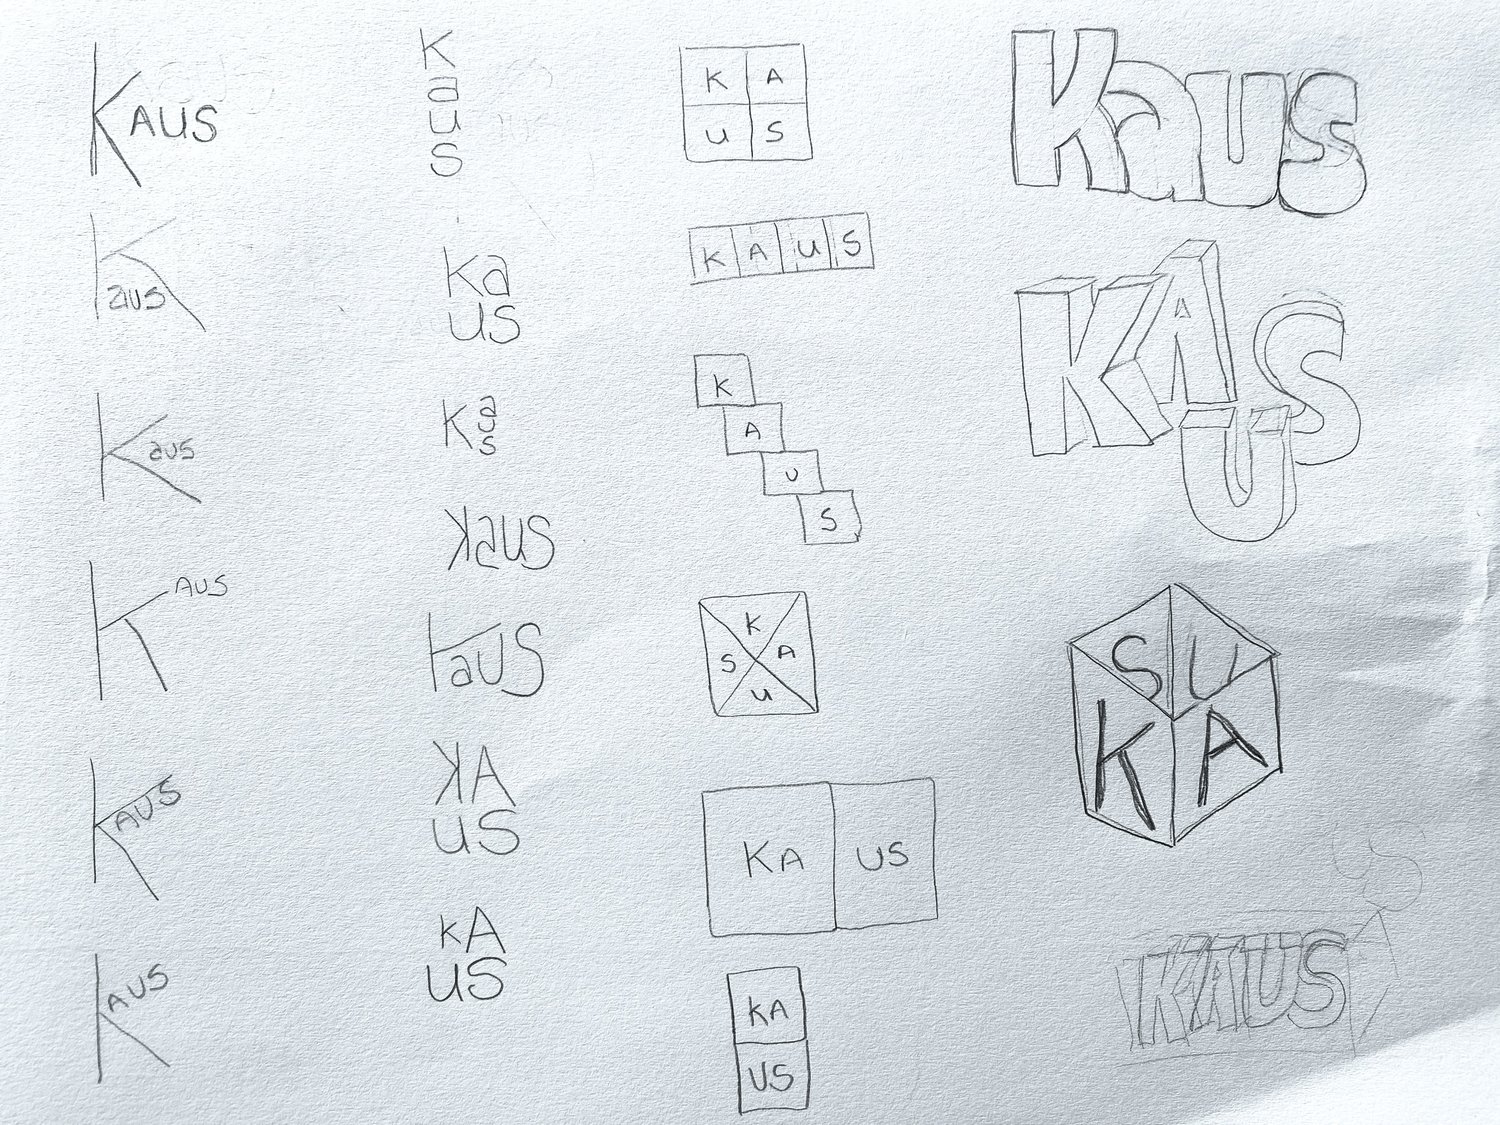 KAUS
Kaus
Kaus
KAUS
KAUS
KAUS
K
a
u
s
Ka
us
Kaus
Kaus
Kaus
KA
US
KA
US
K A
U S
K A U S
K
A
U
S
K
S A
U
KA US
KA
US
Kaus
KAUS
S U
K A
KAUS